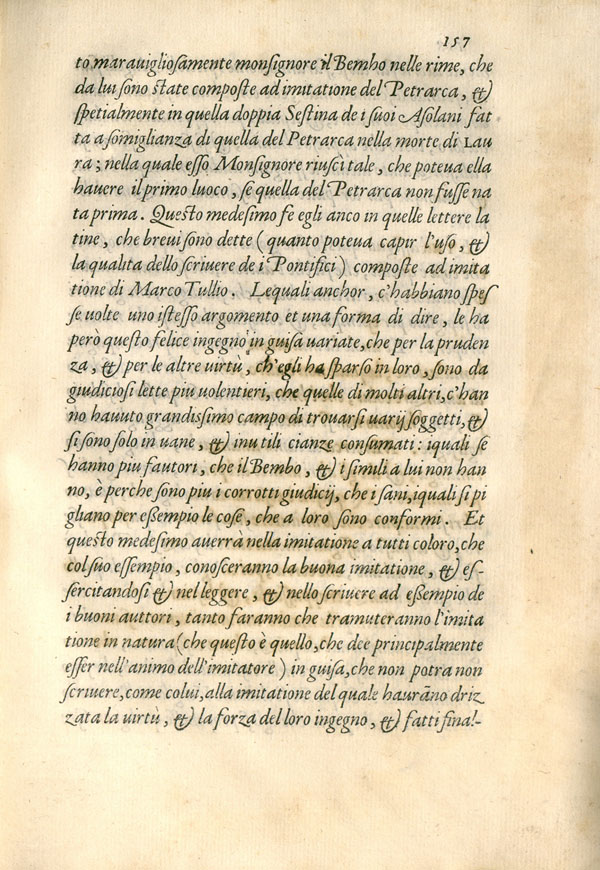 157
to marauigliosamente monsignore il Bembo nelle rime, che
da lui sono state composte ad imitatione del Petrarca, &
spetialmente in quella doppia Sestina de i suoi Asolani fat
ta a somiglianza di quella del Petrarca nella morte di LAU
ra; nella quale esso Monsignore riuscì tale, che poteua ella
hauere il primo luoco, se quella del Petrarca non fusse na
ta prima. Questo medesimo fe egli anco in quelle lettere la
tine, che breui sono dette (quanto poteua capir l'uso, &
la qualita dello scriuere de i Pontifici) composte ad imita
tione di Marco Tullio. Lequali anchor, c'habbiano spes
se uolte uno istesso argomento et una forma di dire, le ha
però questo felice ingegno in guisa uariate, che per la pruden
za, & per le altre uirtù, ch'egli ha sparso in loro, sono da
giudiciosi lette piu uolentieri, che quelle di molti altri, c'han
no hauuto grandissimo campo di trouarsi uarij soggetti, &
si sono solo in uane, & inutili cianze consumati: iquali se
hanno piu fautori, che il Bembo, & i simili a lui non han
no, è perche sono piu i corrotti giudicij, che i sani, iquali si pi
gliano per eßempio le cose, che a loro sono conformi. Et
questo medesimo auerrà nella imitatione a tutti coloro, che
col suo essempio, conosceranno la buona imitatione, & es-
sercitandosi & nel leggere, & nello scriuere ad eßempio de
i buoni auttori, tanto faranno che tramuteranno l'imita
tione in natura (che questo è quello, che dee principalmente
esser nell'animo dell'imitatore) in guisa, che non potra non
scriuere, come colui, alla imitatione del quale haurāno driz
zata la uirtù, & la forza del loro ingegno, & fatti final-